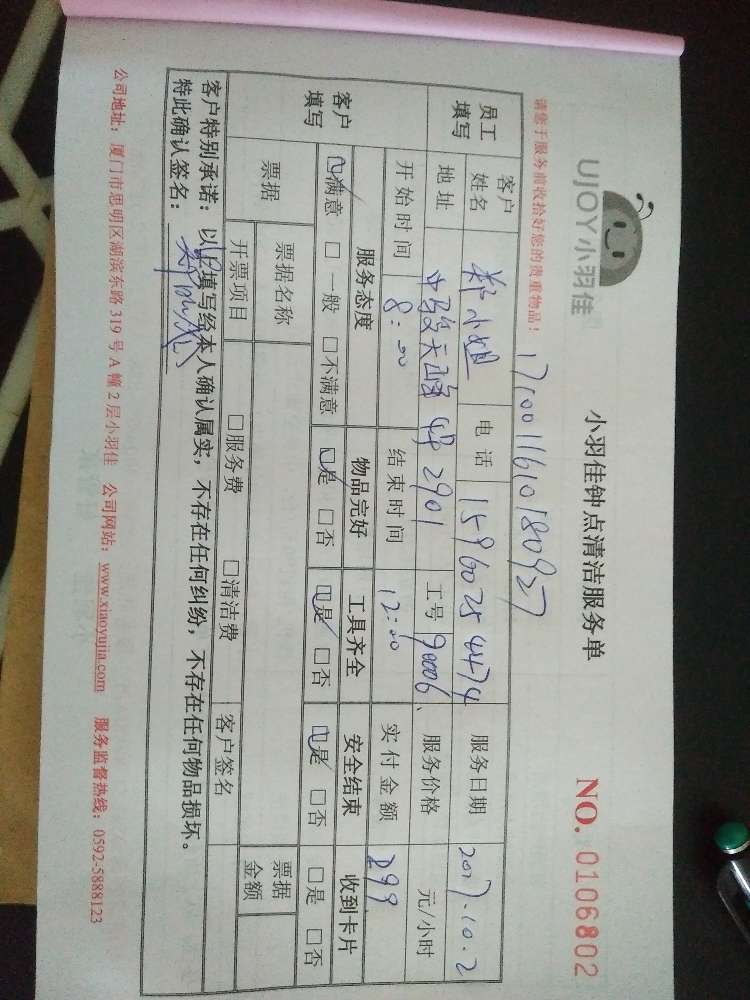 UJOY小羽佳
小羽佳钟点清洁服务单
NO. 0106802
请您于服务前收拾好您的贵重物品！
1710011610180927
员工填写
客户姓名 郑小姐 电话 15960254474 服务日期 2017.10.2
地址 2901 工号 90006 服务价格 元/小时
开始时间 8:00 结束时间 12:00 实付金额 299
客户填写
服务态度 物品完好 工具齐全 安全结束 收到卡片
☑满意 □一般 □不满意 ☑是 □否 ☑是 □否 ☑是 □否 □是 □否
票据 票据名称 票据金额
开票项目 □服务费 □清洁费 客户签名
客户特别承诺：以上填写经本人确认属实，不存在任何纠纷，不存在任何物品损坏。
特此确认签名：
公司地址：厦门市思明区湖滨东路319号A幢2层小羽佳 公司网站：www.xiaoyujia.com 服务监督热线：0592-5888123